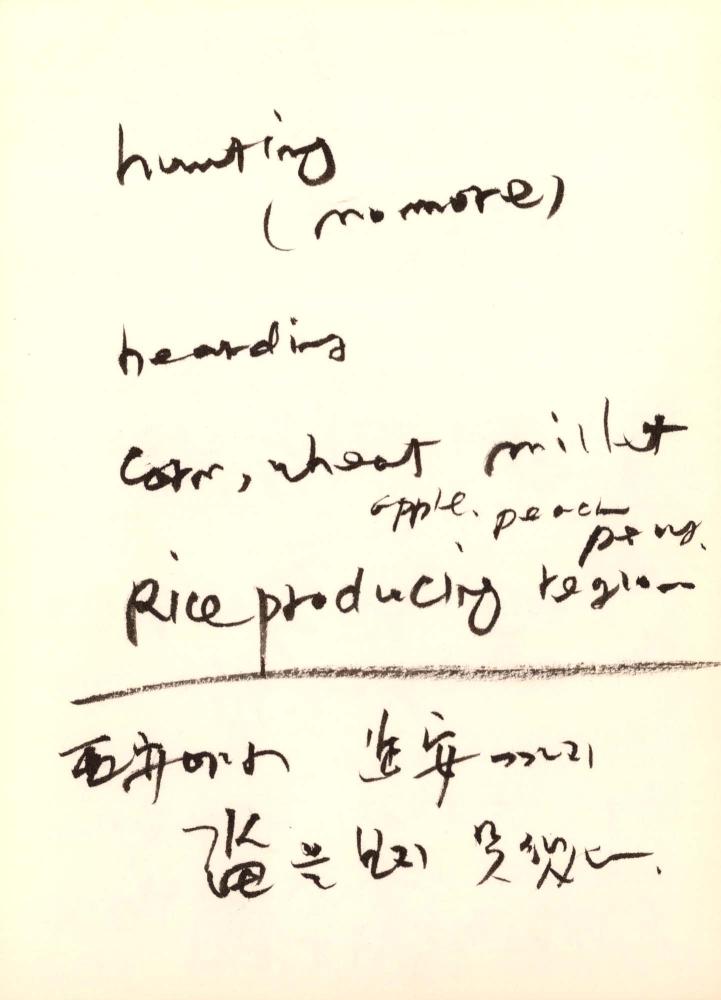 hunting
(no more)
hearding
corn, wheat millet
apple. peach
Rice producing region
西安에서 延安까지
을 보지 못했다.